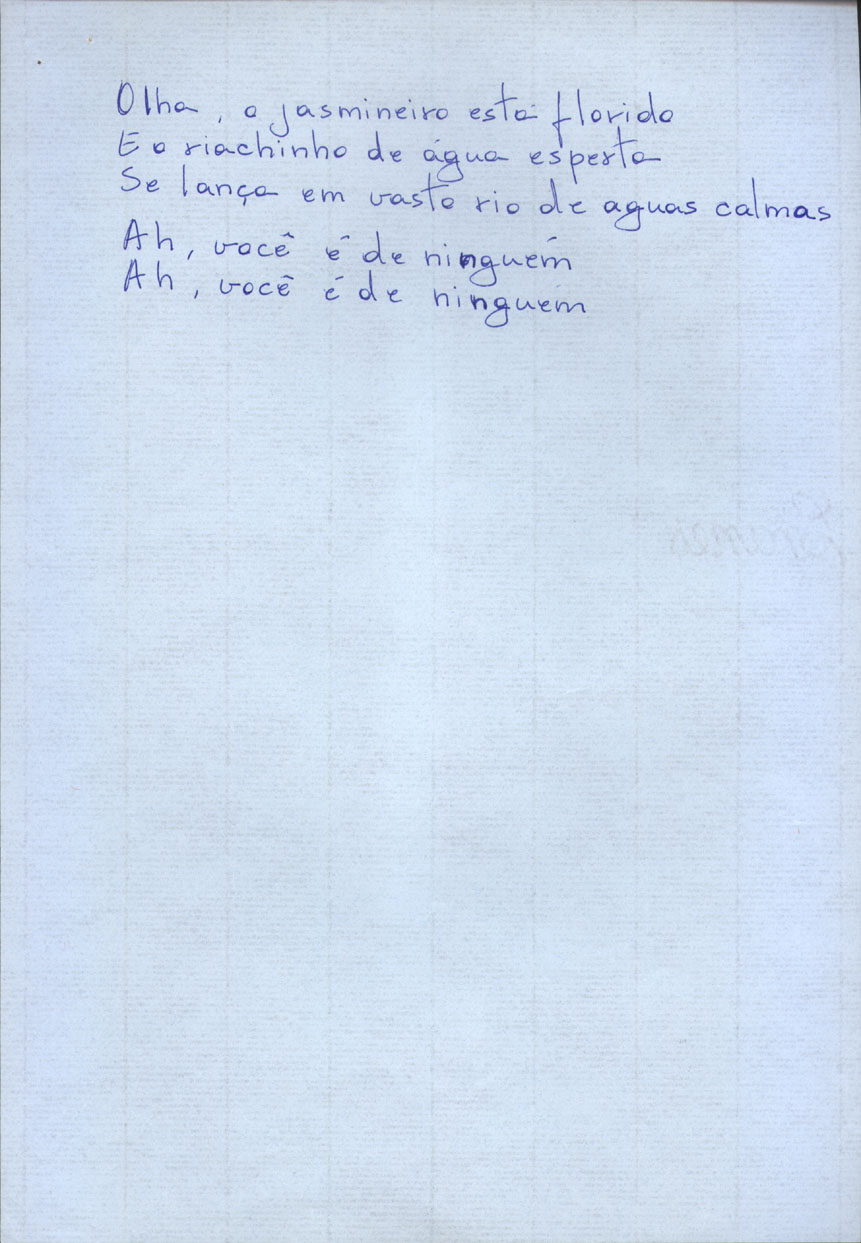 Olha, o jasmineiro está florido
E o riachinho de água esperta
Se lança em vasto rio de aguas calmas
Ah, você é de ninguém
Ah, você é de ninguém